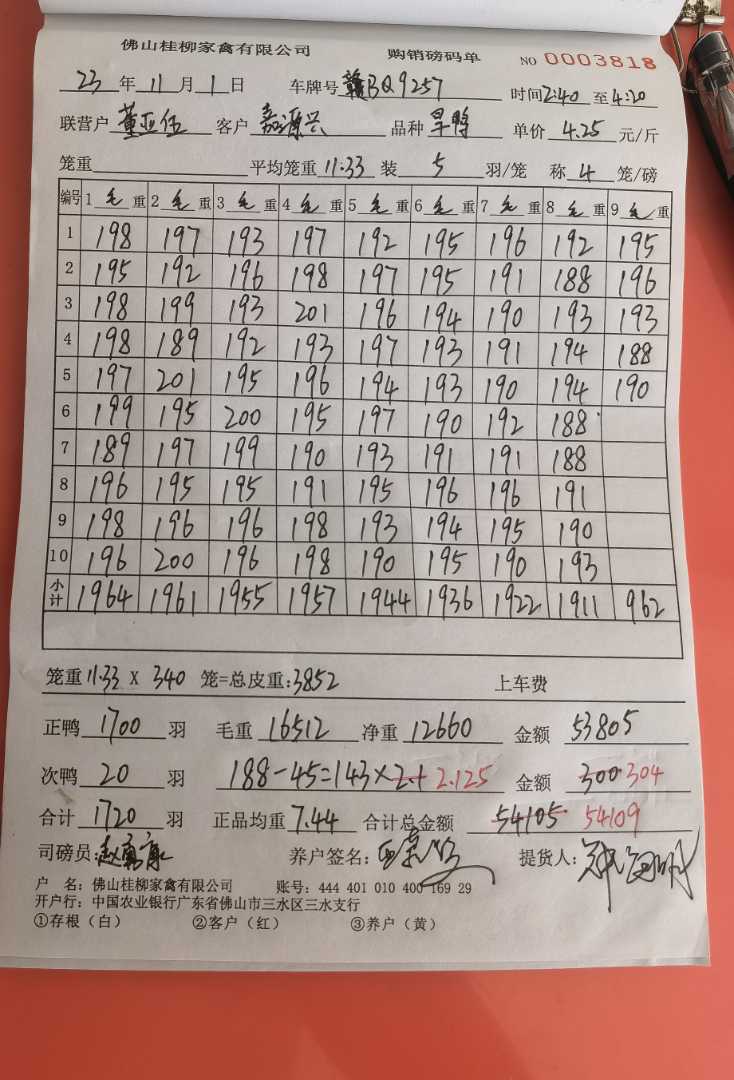 佛山桂柳家禽有限公司 购销磅码单 NO 0003818
23年11月1日 车牌号 赣BQ9257 时间2:40至4:20
联营户 董亚伍 客户 嘉源兴 品种 旱鸭 单价 4.25 元/斤
笼重 平均笼重 11.33 装 5 羽/笼 称 4 笼/磅
编号 1毛重 2毛重 3毛重 4毛重 5毛重 6毛重 7毛重 8毛重 9毛重
1 198 197 193 197 192 195 196 192 195
2 195 192 196 198 197 195 191 188 196
3 198 199 193 201 196 194 190 193 193
4 198 189 192 193 197 193 191 194 188
5 197 201 195 196 194 193 190 194 190
6 199 195 200 195 197 190 192 188
7 189 197 199 190 193 191 191 188
8 196 195 195 191 195 196 196 191
9 198 196 196 198 193 194 195 190
10 196 200 196 198 190 195 190 193
小计 1964 1961 1955 1957 1944 1936 1922 1911 962
笼重 11.33 X 340 笼=总皮重:3852 上车费
正鸭 1700 羽 毛重 16512 净重 12660 金额 53805
次鸭 20 羽 188-45=143×2.1 2.125 金额 300 304
合计 1720 羽 正品均重 7.44 合计总金额 54105 54109
司磅员:赵勇康 养户签名: 提货人:
户 名:佛山桂柳家禽有限公司 账号:444 401 010 400 169 29
开户行:中国农业银行广东省佛山市三水区三水支行
①存根（白） ②客户（红） ③养户（黄）